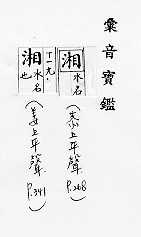 彙音寶鑑
湘 水名
(恭上平聲 P.268)
丁一九・
湘 水名也
(姜上平聲 P.341)